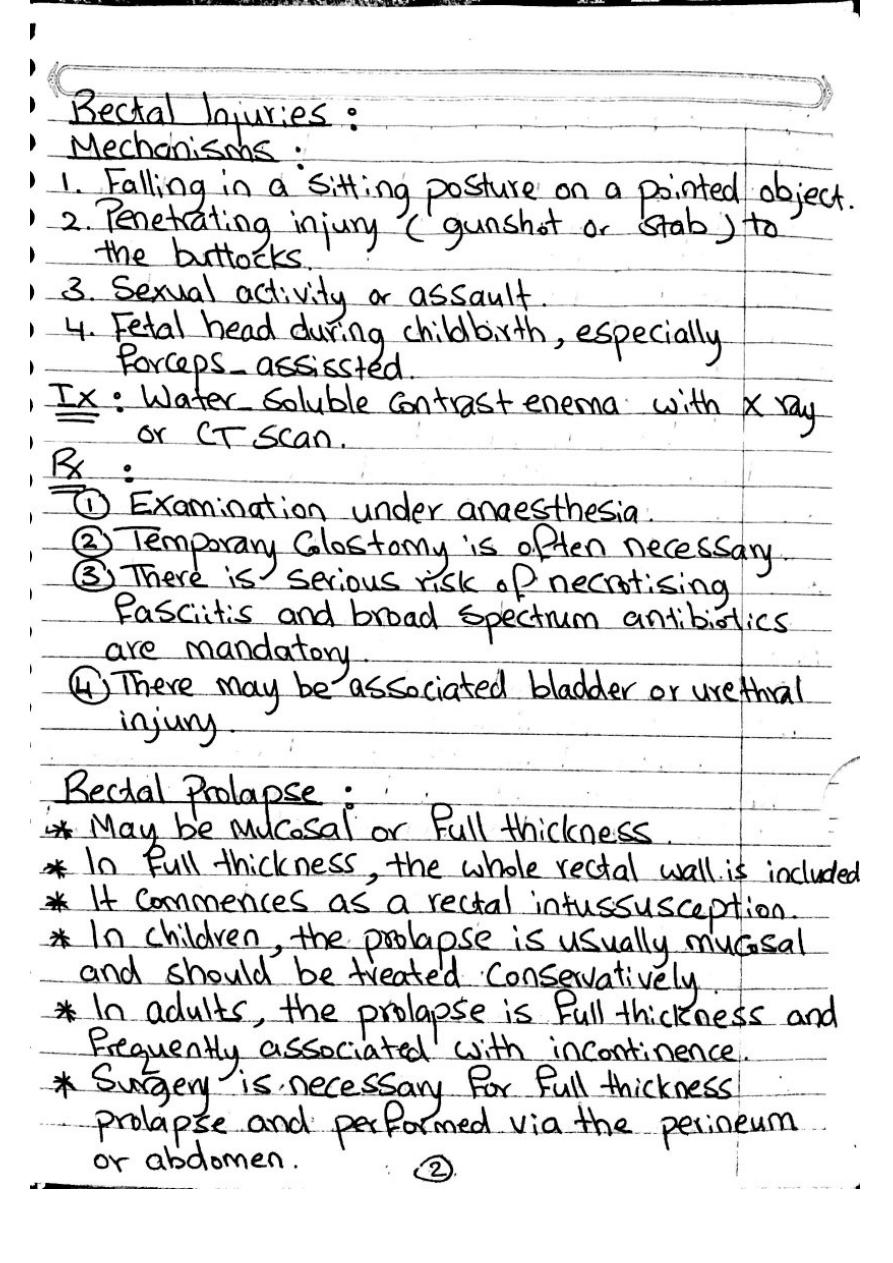 Rectal Injuries :
Mechanisms :
1. Falling in a sitting posture on a pointed object.
2. Penetrating injury ( gunshot or stab ) to
the buttocks.
3. Sexual activity or assault.
4. Fetal head during childbirth, especially
forceps-assissted.
Ix : Water-Soluble Contrast enema with x ray
or CT scan.
Rx :
① Examination under anaesthesia.
② Temporary Colostomy is often necessary.
③ There is serious risk of necrotising
fasciitis and broad spectrum antibiotics
are mandatory.
④ There may be associated bladder or urethral
injury.
Rectal Prolapse :
* May be Mucosal or full thickness.
* In full thickness, the whole rectal wall is included
* It Commences as a rectal intussusception.
* In children, the prolapse is usually mucosal
and should be treated Conservatively.
* In adults, the prolapse is full thickness and
frequently associated with incontinence.
* Surgery is necessary for full thickness
prolapse and performed via the perineum
or abdomen.
②